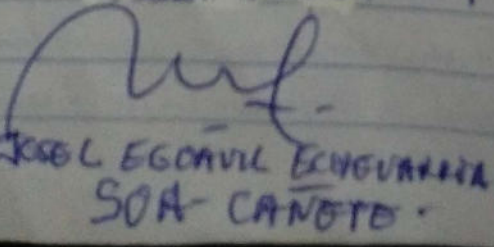 JOSE L EGOAVIL ECHEVARRIA
SOA - CAÑETE.